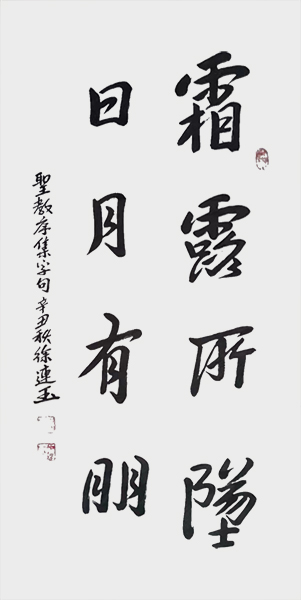 霜露所墜
日月有朋
聖教序集字句辛丑秋徐連玉